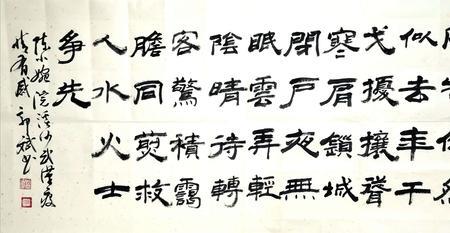 似去年干
戈擾攘聲
寒肩鎖城
閉戶夜無
眠雲弄輕
陰晴待轉
客驚積靄
膽同煎救
人水火士
爭先
小婉浣溪沙武漢疫
情有感